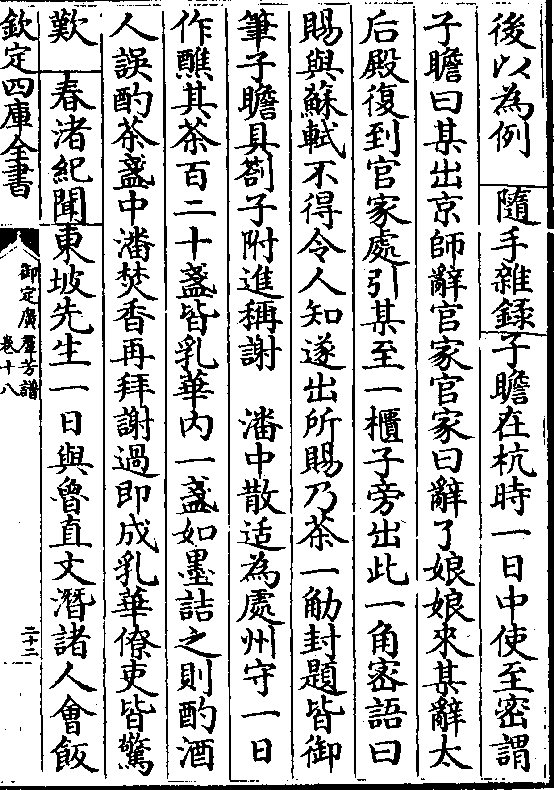 後以為例　隨手雜録子瞻在杭時一日中使至密謂
子瞻曰某出京師辭官家官家曰辭了娘娘來某辭太
后殿復到官家處引某至一櫃子旁出此一角密語曰
賜與蘇軾不得令人知遂出所賜乃茶一觔封題皆御
筆子瞻具劄子附進稱謝　潘中散适為處州守一日
作醮其茶百二十盞皆乳華内一盞如墨詰之則酌酒
人誤酌茶盞中潘焚香再拜謝過即成乳華僚吏皆驚
歎　春渚紀聞東坡先生一日與魯直文潛諸人會飯
欽定四庫全書
御定廣羣芳譜
卷十八
二十二